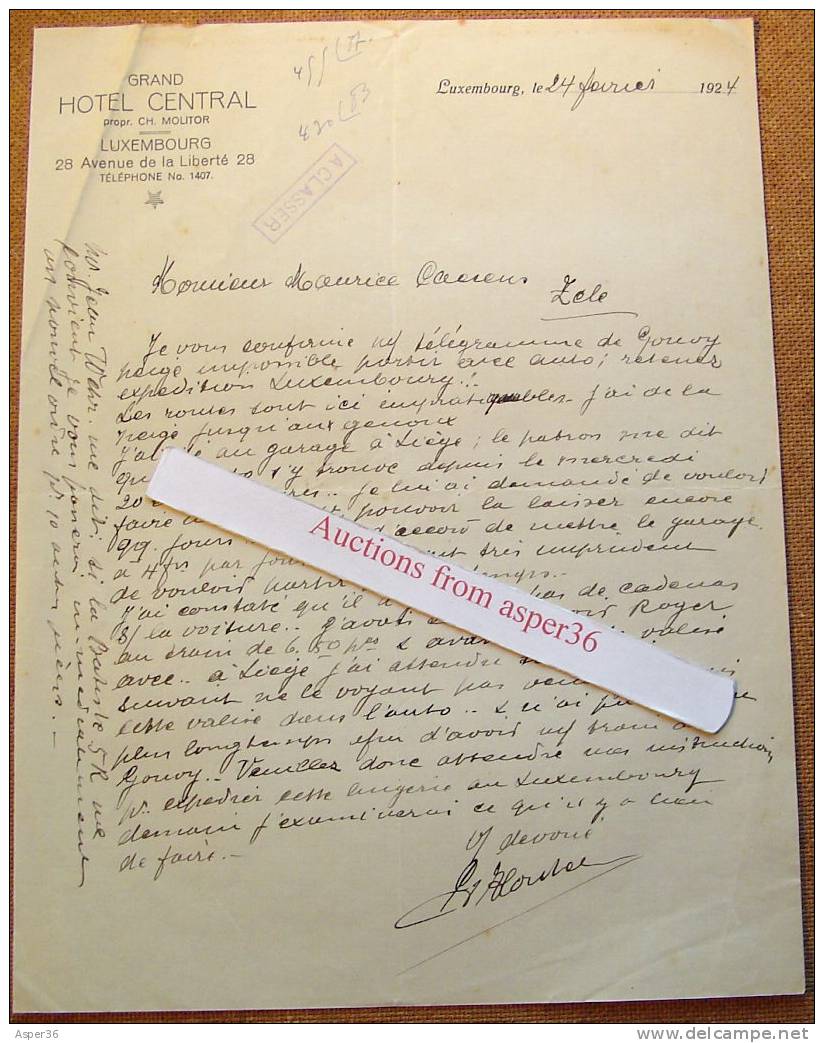 GRAND
HOTEL CENTRAL
propr. CH. MOLITOR
LUXEMBOURG
28 Avenue de la Liberté 28
TÉLÉPHONE No. 1407.
A CLASSER
Luxembourg, le 24 février 1924
Monsieur Maurice
Zele
Je vous confirme télégramme de Gouvy
neige impossible partir avec auto; retenez
expedition Luxembourg."
Les routes sont ici impratiquables. J'ai de la
neige jusqu'aux genoux
J'ai été au garage à Liège; le patron me dit
s'y trouve depuis le mercredi
20 Je lui ai demandé de vouloir
faire pouvoir la laisser encore
qq. jours d'accord de mettre le garage
à 4 frs par jour très imprudent
de vouloir partir temps..
J'ai constaté qu'il pas de cadenas
s/ la voiture.. J'avais Roger
au train de 6.50 valise
avec.. à Liège j'ai attendre
suivant ne le voyant pas
cette valise dans l'auto.. & n'ai
plus longtemps afin d'avoir train
Gouvy.- Veuillez donc attendre mes instructions
pr. expedier cette lingerie au Luxembourg
demain j'examinerai ce qu'il y a lieu
de faire.-
devoué
Mr. Jean me dit: si la 5 R me
convient je vous immediatement
une nouvelle ordre pr. 10 autres pièces.-
Auctions from asper36
Asper36
www.delcampe.net